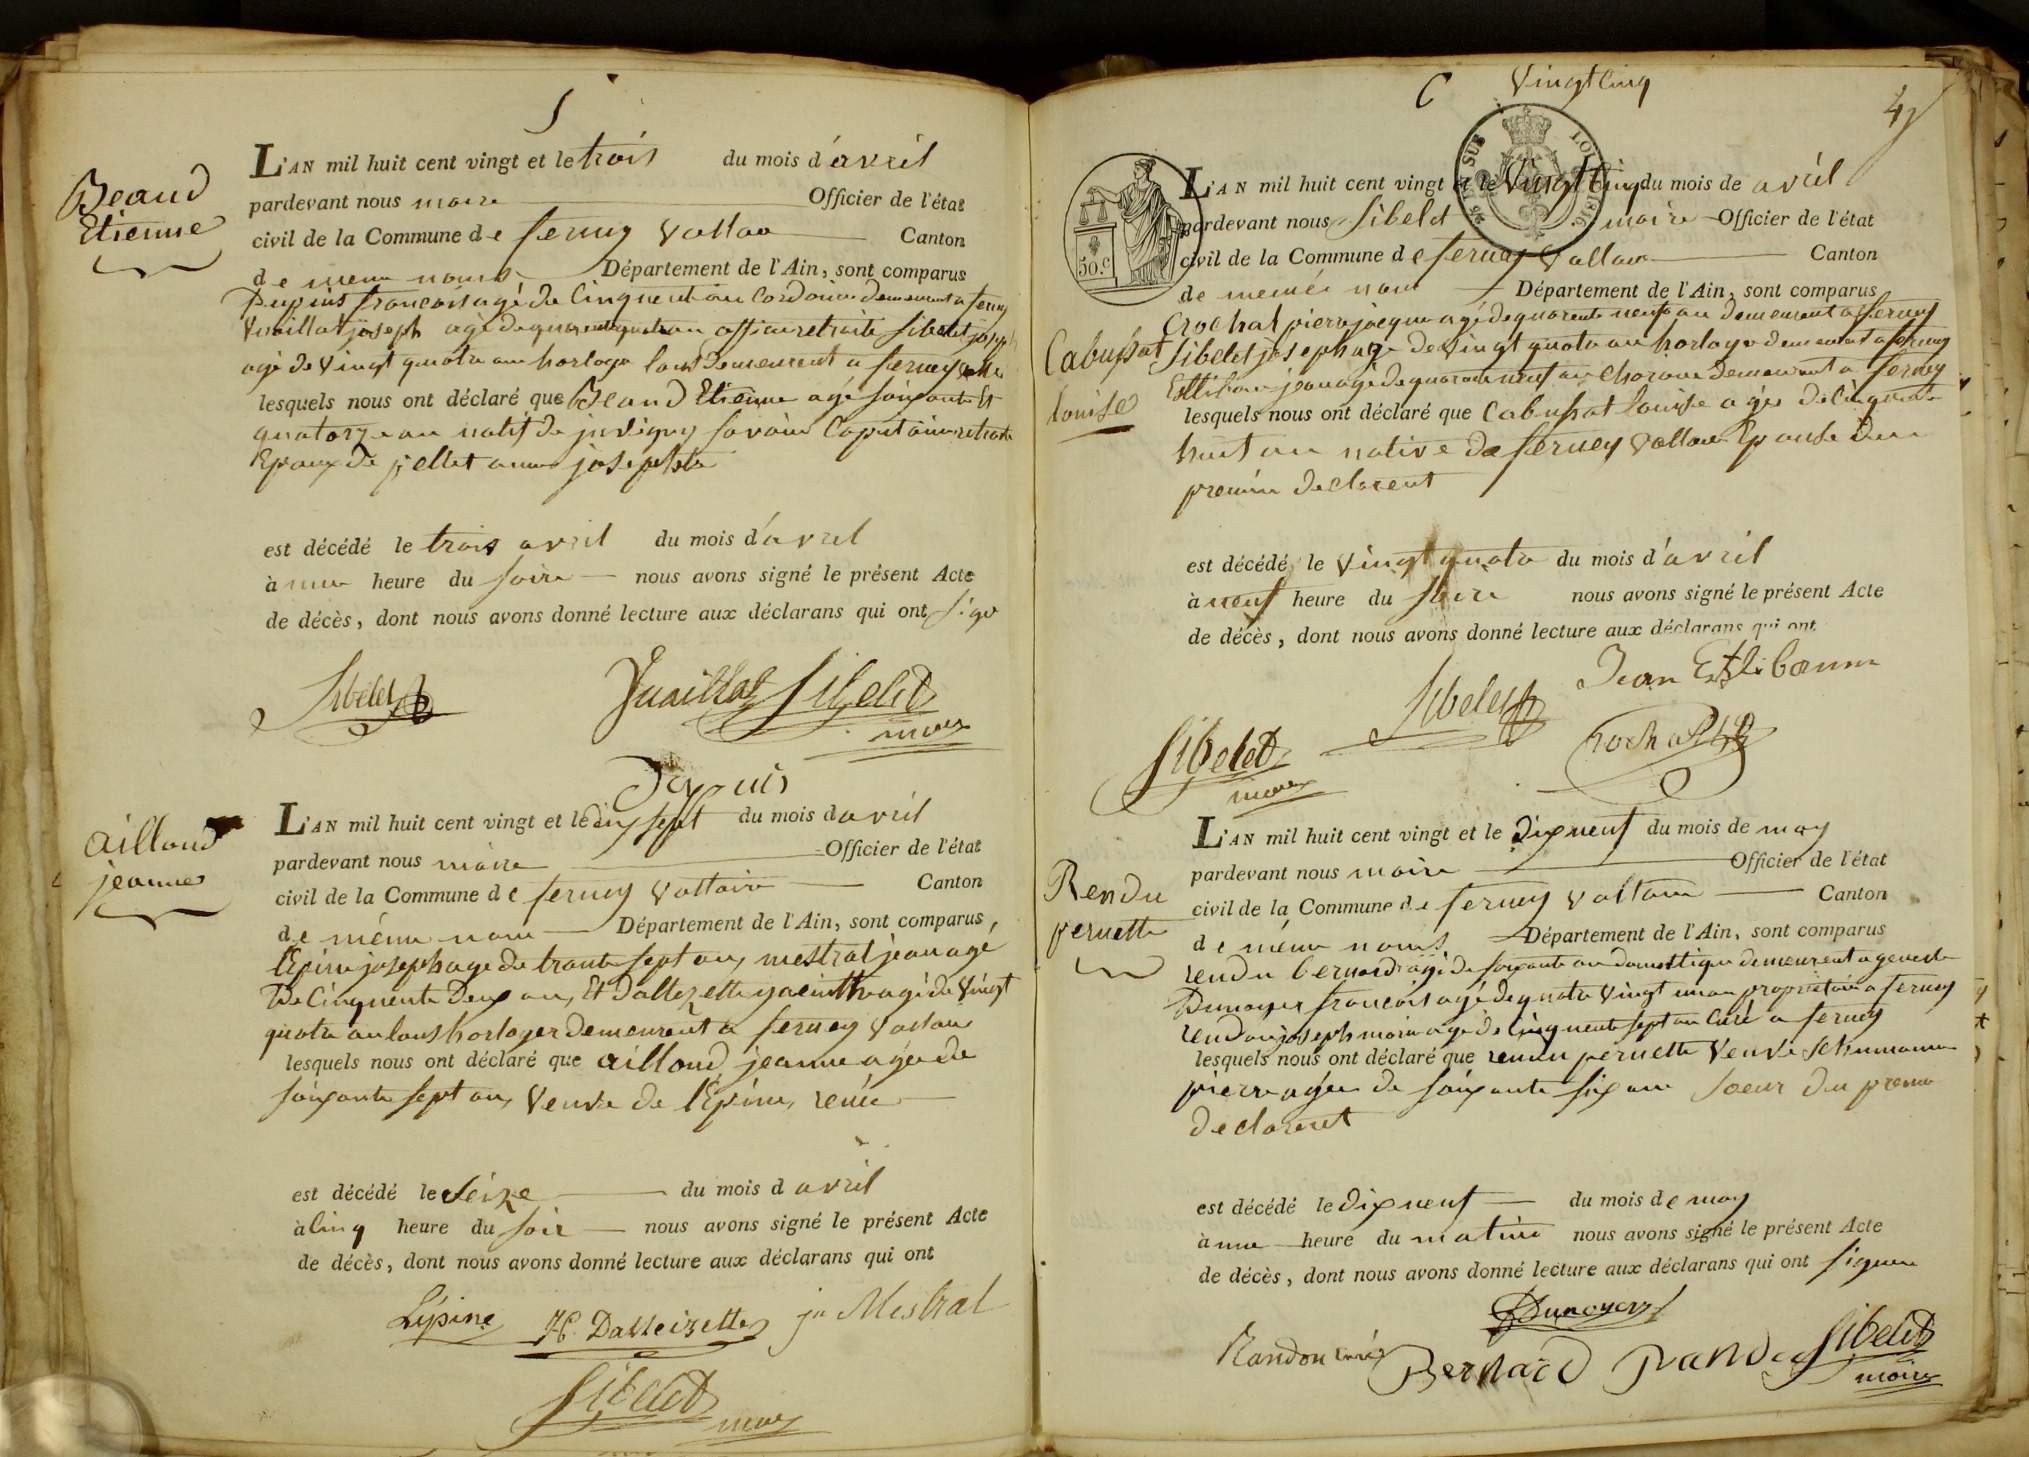 Beaud
Etienne
L'AN mil huit cent vingt et le trois du mois d'avril
pardevant nous maire Officier de l'état
civil de la Commune de ferney Voltaire Canton
de meme noms Département de l'Ain, sont comparus
françois agé de Cinquente an Cordonier demeurent a ferney
Vuaillat joseph agé de quarente quatre an officier retraite Sibelet joseph
agé de Vingt quatre an horloger tous demeurent a ferney
lesquels nous ont déclaré que Beaud Etienne agé soixante et
quatorze an natif de juvigny savoie Capitaine retraite
Epoux de pellet anne josephte
est décédé le trois avril du mois d'avril
à une heure du soire nous avons signé le présent Acte
de décès, dont nous avons donné lecture aux déclarans qui ont
Sibelet Vuaillat Sibelet
maire
Ailloud
jeanne
L'AN mil huit cent vingt et le dix sept du mois d avril
pardevant nous maire Officier de l'état
civil de la Commune de ferney Voltaire Canton
de même nom Département de l'Ain, sont comparus
lépine joseph age de trante sept an, mestral jean agé
de Cinquente Deux an, Et Dalleizette yacinthe agé de Vingt
quatre an tous horloger demeurent a ferney Voltaire
lesquels nous ont déclaré que Ailloud jeanne agée de
soixante sept an, Veuve de lépine, rené
est décédé le Seize du mois d avril
à Cinq heure du soir nous avons signé le présent Acte
de décès, dont nous avons donné lecture aux déclarans qui ont
Lépine H. Dalleizette jn Mestral
Sibelet
maire
Vingt Cinq
L'AN mil huit cent vingt et le Vingt Cinq du mois de avril
pardevant nous Sibelet maire Officier de l'état
civil de la Commune de ferney Voltaire Canton
de même nom Département de l'Ain, sont comparus
50.c
1816
Cabussat
louise
Crochat pierre jacque agé de quarente neuf an demeurent a ferney
Sibelet joseph age de Vingt quatre an horloger demeurent a ferney
jean agé de quarente neuf an demeurent a ferney
lesquels nous ont déclaré que Cabussat louise agée de Cinquente
huit an native de ferney Voltaire Epouse du
premier declarent
est décédé le Vingt quatre du mois d'avril
à neuf heure du soire nous avons signé le présent Acte
de décès, dont nous avons donné lecture aux déclarans qui ont
Jean Estibeaunn
Sibelet Sibelet Crochat
maire
Rendu
pernette
L'AN mil huit cent vingt et le dix neuf du mois de may
pardevant nous maire Officier de l'état
civil de la Commune de ferney Voltaire Canton
de même noms Département de l'Ain, sont comparus
rendu bernard agé de soixante an domestique demeurent a geneve
Dunoyer françois agé de quatre Vingt un an proprietaire a ferney
joseph marie agé de Cinquente sept an Curé a ferney
lesquels nous ont déclaré que rendu pernette Veuve
pierre agée de soixante six an soeur du premier
declarent
est décédé le dix neuf du mois de may
à une heure du matin nous avons signé le présent Acte
de décès, dont nous avons donné lecture aux déclarans qui ont signer
Dunoyer
Randon Curé Bernard Randu Sibelet
maire